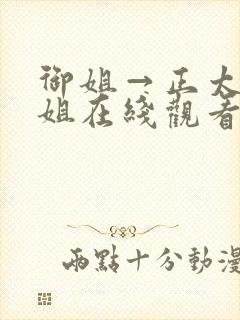 御姐→正太
姐在綫觀看
兩點十分動漫